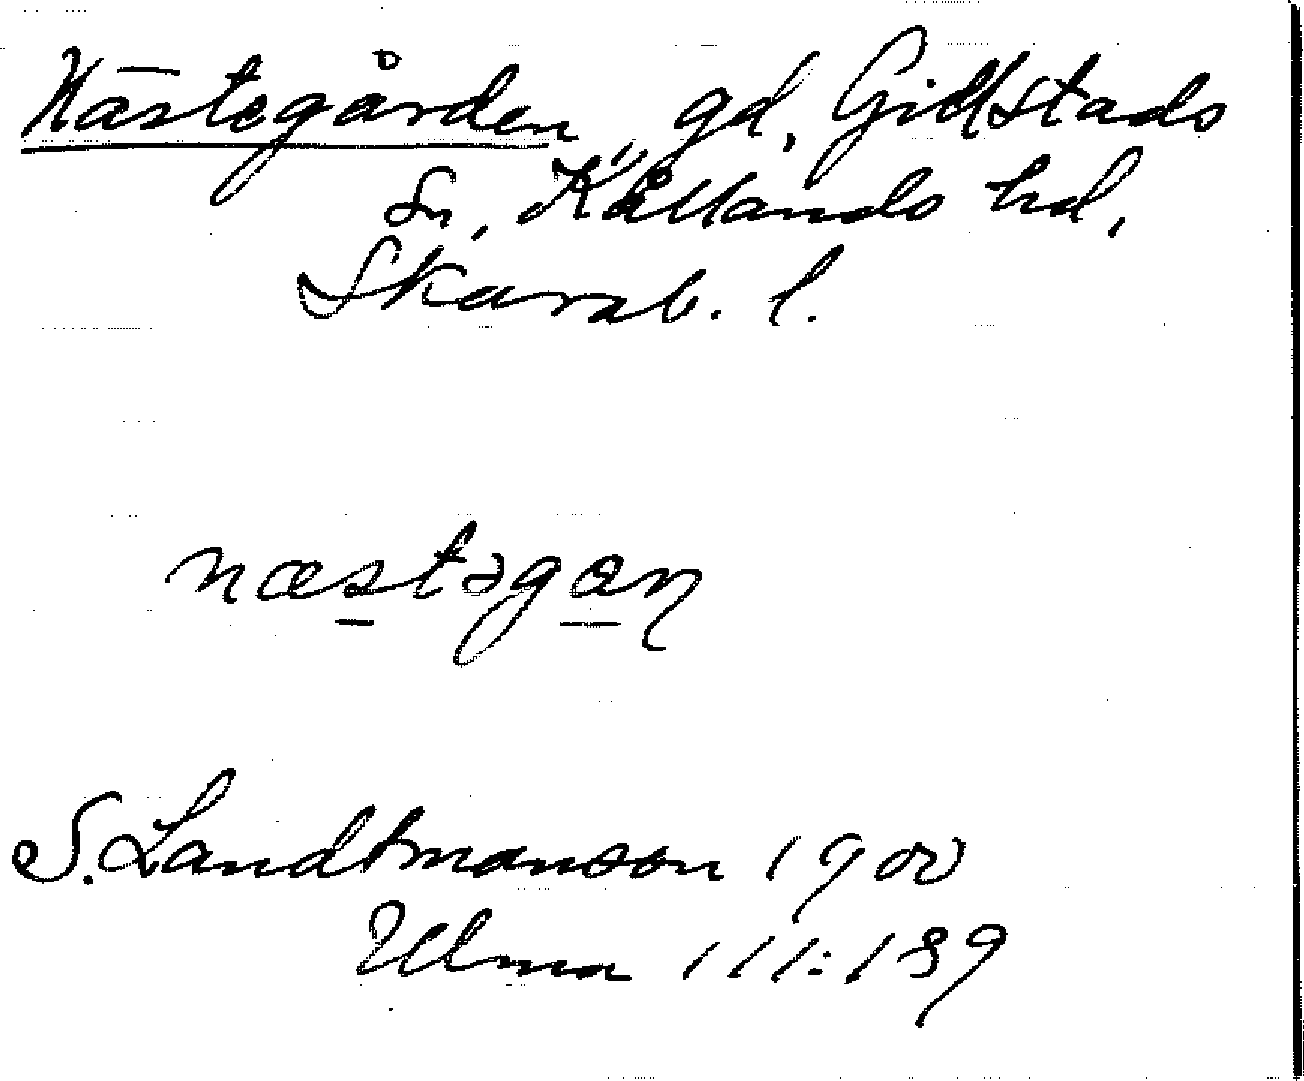 Nästegården, gd, Gillstads
sn, Kållands hd,
Skarab. l.
næstəgan
S. Landtmanson 1900
Ulma 111:139